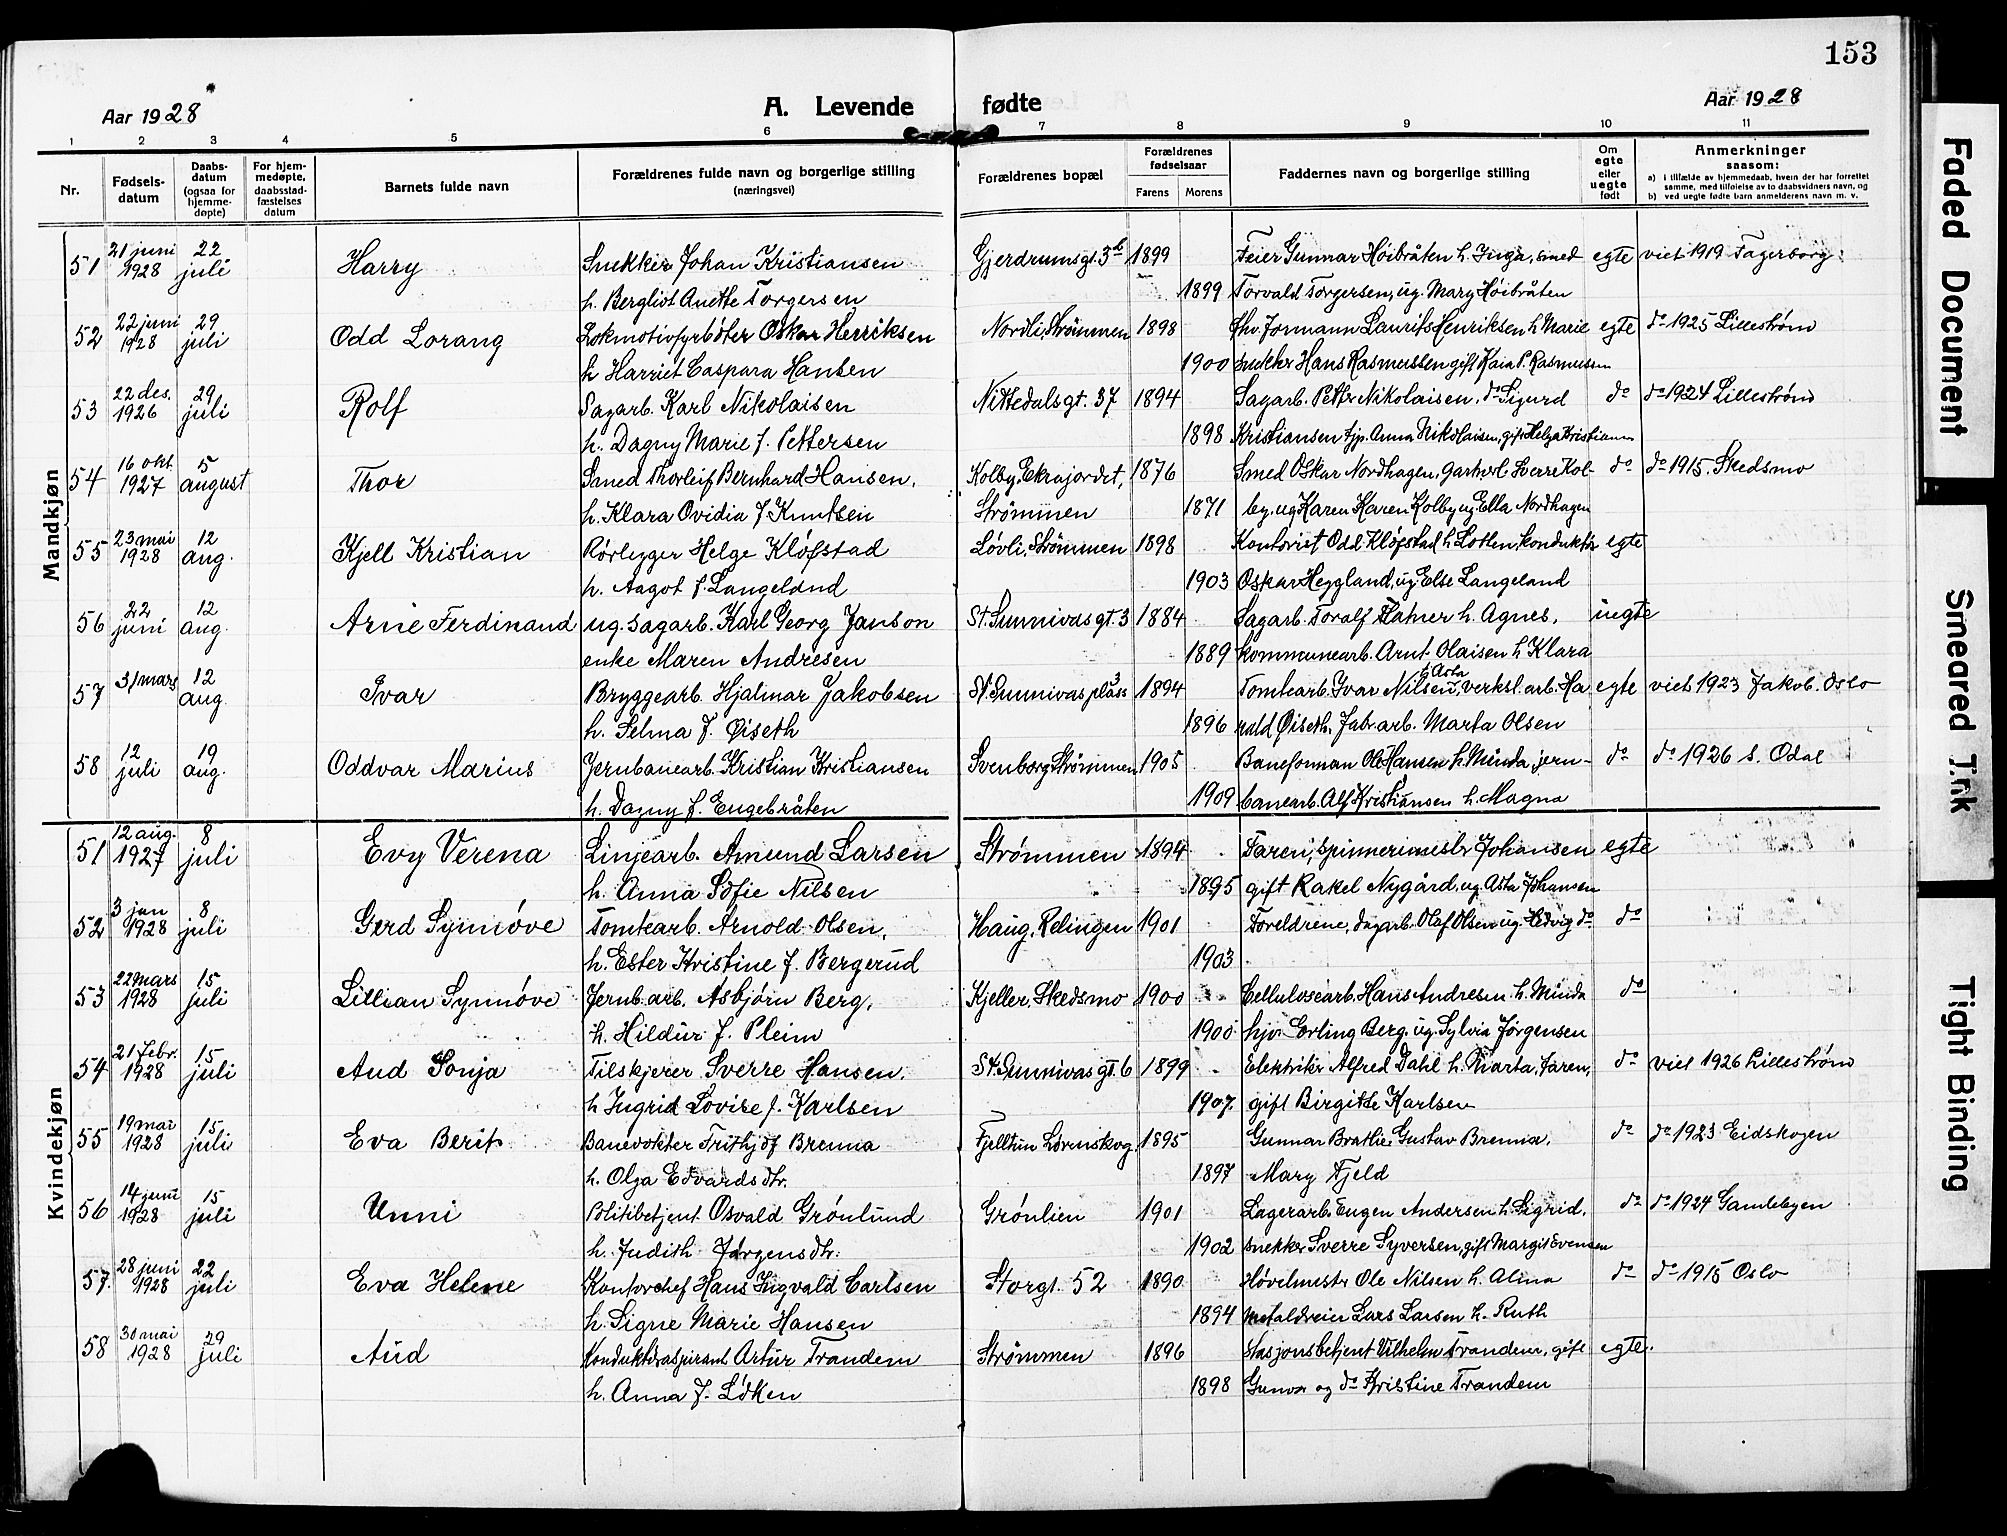 153
Aar 1928 A. Levende fødte Aar 1928
1 2 3 4 5 6 7 8 9 10 11
Nr. Fødsels-datum Daabs-datum (ogsaa for hjemme-døpte) For hjem-medøpte, daabsstad-fæstelses datum Barnets fulde navn Forældrenes fulde navn og borgerlige stilling (næringsvei) Forældrenes bopæl Forældrenes fødselsaar Farens Morens Faddernes navn og borgerlige stilling Om egte eller uegte født Anmerkninger saasom:
a) i tilfælde av hjemmedaab, hvem der har forrettet samme, med tilføielse av to daabsvidners navn, og
b) ved uegte fødte barn anmelderens navn m. v.
Mandkjøn
51 21 juni 1928 22 juli Harry Snekker Johan Kristiansen Gjerdrumsgt. 3b 1899 Feier Gunnar Høibråten h. Inga, smed egte viet 1919 Fagerborg.
h. Bergliot Anette Torgersen 1899 Torvald Torgersen, ug. Mary Høibråten
52 22 juni 1928 29 juli Odd Lorang Lokmotivfyrbøter Oskar Henriksen Nordli, Strømmen 1898 Hv. formann Laurits Henriksen h. Marie egte do 1925 Lillestrøm
h. Harriet Caspara Hansen 1900 snekker Hans Rasmussen gift Kaia P. Rasmussen
53 22 des. 1926 29 juli Rolf Sagarb. Karl Nikolaisen Nittedalsgt. 37 1894 Sagarb. Petter Nikolaisen, do Sigurd do do 1924 Lillestrøm
h. Dagny Marie f. Pettersen 1898 Kristiansen tjp. Anna Nikolaisen, gift Helga Kristiansen
54 16 okt. 1927 5 august Thor Smed Thorleif Bernhard Hansen, Kolby, Ekrajordet, 1876 Smed Oskar Nordhagen, gartnerl. Sverre Kol- do do 1915 Skedsmo
h. Klara Ovidia f. Knutsen Strømmen 1871 by, ug Karen Karen Kolby ug Ella Nordhagen
55 23 mai 1928 12 aug. Kjell Kristian Rørlegger Helge Kløfstad Løvli, Strømmen 1898 Kontorist Odd Kløfstad h. Lotten, konduktør egte
h. Aagot f. Langeland 1903 Oskar Heggland, ug Else Langeland
56 22 juni 12 aug. Arne Ferdinand ug. sagarb. Karl Georg Janson St. Sunnivas gt. 3 1884 Sagarb. Toralf Flatner h. Agnes, uegte
enke Maren Andresen 1889 kommunearb. Arnt Olaisen h. Klara
57 31 mars 12 aug. Ivar Bryggearb. Hjalmar Jakobsen St. Sunnivas plass 3 1894 Tomtearb. Ivar Nilsen, h Asta verkst. arb. Ha egte viet 1923 Jakob. Oslo
h. Selma f. Øiseth 1896 rald Øiseth, fabr. arb. Marta Olsen
58 12 juli 19 aug. Oddvar Marius Jernbanearb. Kristian Kristiansen Svenborg, Strømmen 1905 Baneformann Ole Hansen h. Minda, jern- do do 1926 S. Odal
h. Dagny f. Engebråten 1909 banearb. Alf Kristiansen h. Magna
Kvindekjøn
51 12 aug. 1927 8 juli Evy Verena Linjearb. Amund Larsen Strømmen 1894 Faren, spinnerimestr Johansen egte
h. Anna Sofie Nilsen 1895 gift Rakel Nygård, ug. Asta Johansen
52 3 jan 1928 8 juli Gerd Synnøve Tomtearb. Arnold Olsen, Haug, Relingen 1901 Foreldrene, dagarb. Olaf Olsen ug. Hedvig do do
h. Ester Kristine f. Bergerud 1903
53 22 mars 1928 15 juli Lillian Synnøve Jernb. arb. Asbjørn Berg, Kjeller, Skedsmo 1900 Cellulosearb. Hans Andresen h. Minda do
h. Hildur f. Pleim 1900 hjv. Erling Berg, ug. Sylvia Jørgensen
54 21 febr. 1928 15 juli Aud Sonja Tilskjærer Sverre Hansen, St. Sunnivas gt. 6 1899 Elektriker Alfred Dahl h. Marta, faren, do viet 1926 Lillestrøm
h. Ingrid Lovise f. Karlsen 1907 gift Birgitte Karlsen
55 19 mai 1928 15 juli Eva Berit Banevokter Frithjof Brenna Fjelltun Lørenskog 1895 Gunnar Brathie, Gustav Brenna, do do 1923 Eidskogen
h. Olga Edvardsdtr. 1897 Mary Fjeld
56 14 juni 1928 15 juli Unni Politibetjent Osvald Grønlund Grønlien 1901 Lagerarb. Eugen Andersen h. Sigrid, do do 1924 Gamlebyen
h. Judith Jørgensdtr. 1902 snekker Sverre Syversen, gift Margit Evensen
57. 28 juni 1928 22 juli Eva Helene Kontorchef Hans Ingvald Carlsen Storgt. 52 1890 Høvelmestr Ole Nilsen h. Alma do do 1915 Oslo
h. Signe Marie Hansen 1894 Metaldreier Lars Larsen h. Ruth
58 30 mai 1928 29 juli Aud Konduktøraspirant Artur Trandem Strømmen 1896 Stasjonsbetjent Vilhelm Trandem, gift egte.
h. Anna f. Løken 1898 Gunvor og do Kristine Trandem
Faded Document
Smeared Ink
Tight Binding